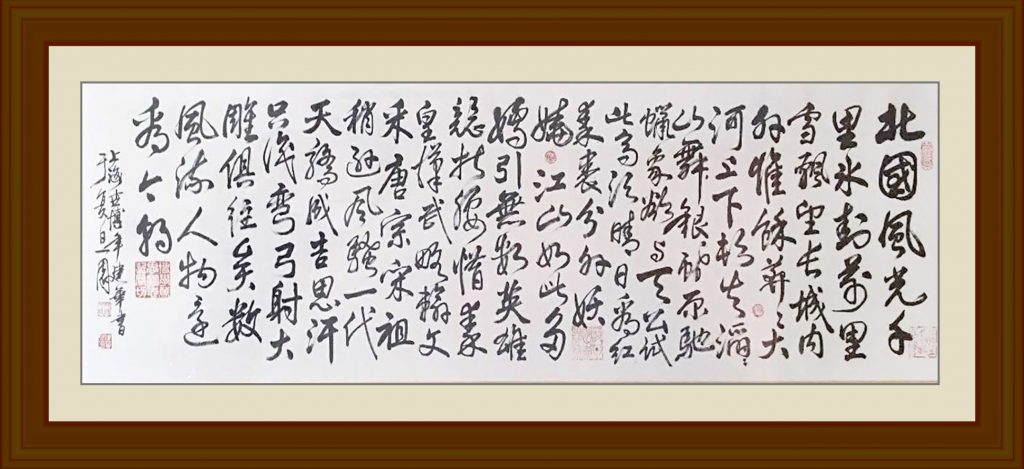 北國風光千
里冰封萬里
雪飄望长城内
外惟餘莽〻大
河上下頓失滔〻
山舞銀蛇原馳
蠟象欲与天公试
比高须晴日看红
素裹分外妖
嬈江山如此多
嬌引無數英雄
競折腰惜秦
皇漢武略輸文
采唐宗宋祖
稍逊風騷一代
天驕成吉思汗
只识弯弓射大
雕俱往矣數
風流人物還
看今朝
上海世博年建華書
于复旦園